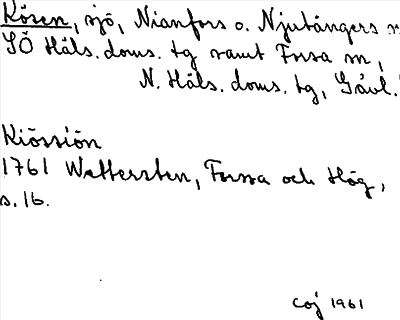 Kösen, sjö, Nianfors o. Njutångers
SÖ Häls. doms. tg samt Forsa sn,
N. Häls. doms. tg, Gävl.
Kiössiön
1761 Wettersten, Forssa och Hög,
s. 16.
CoJ 1961